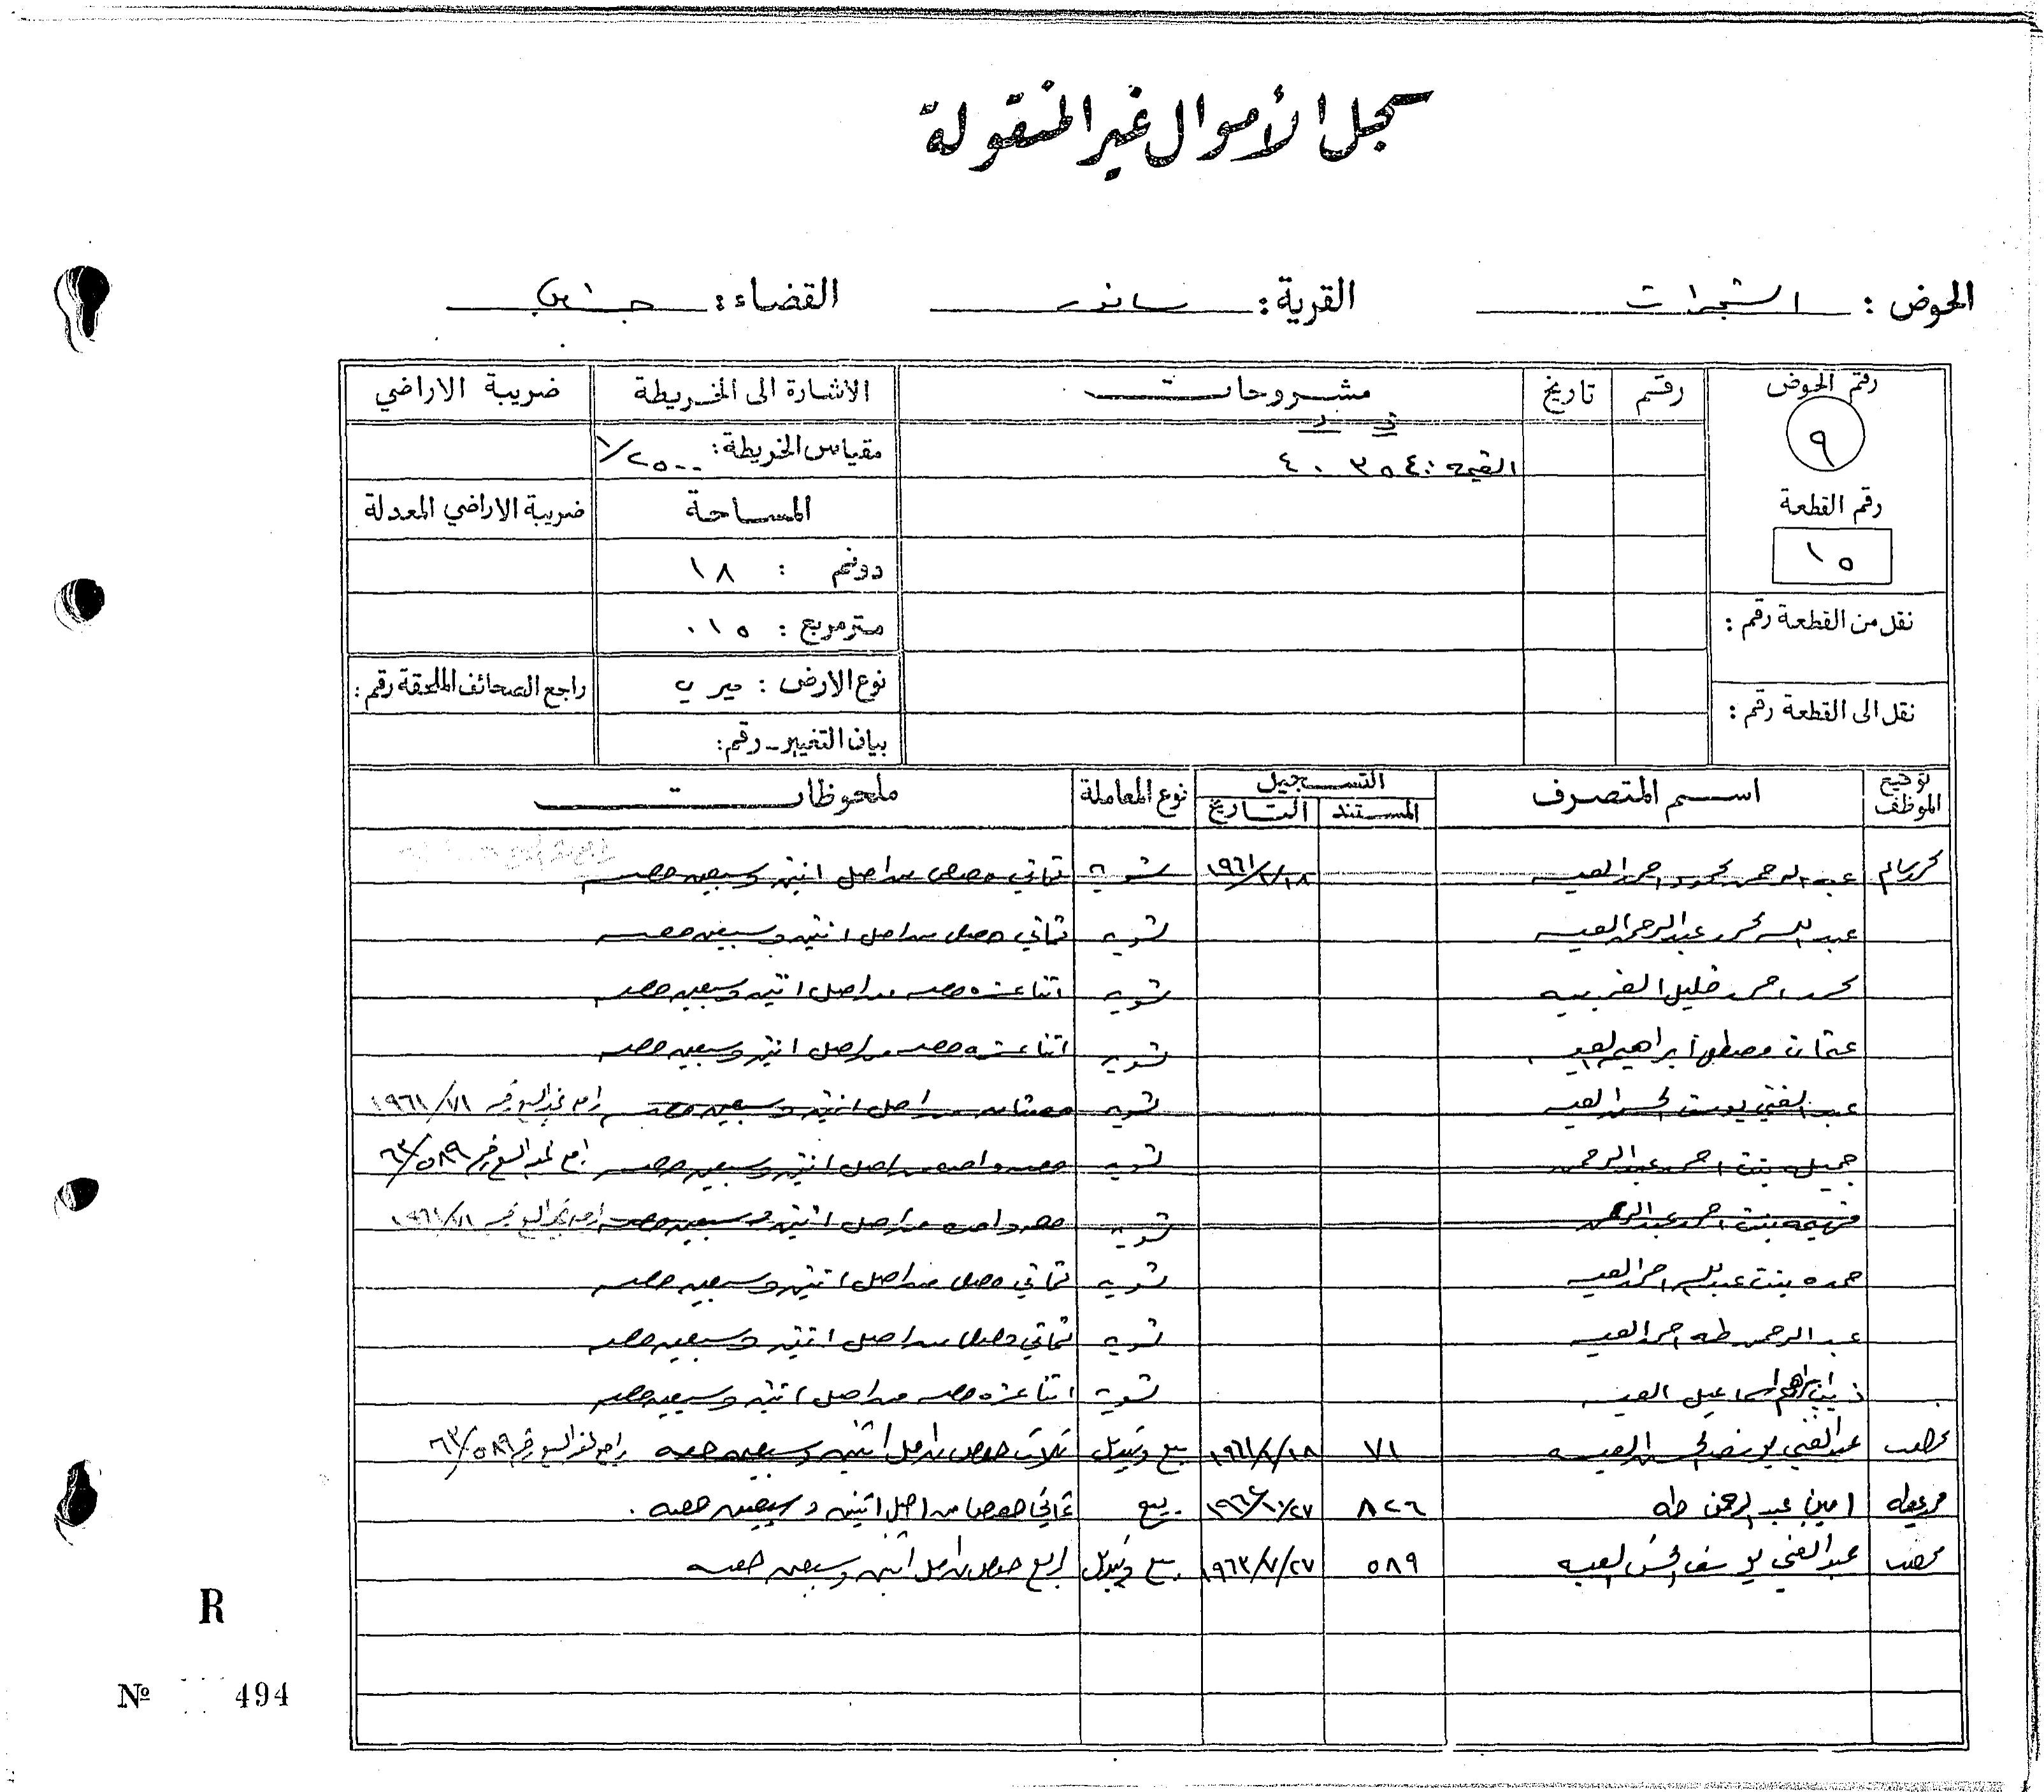 سجل الأموال غير المنقولة
الحوض : الشجرات القرية : سانور القضاء : جنين
رقم الحوض رقم تاريخ مشروحات الاشارة الى الخريطة ضريبة الاراضي
٩ مقياس الخريطة : ١/٢٥٠٠
القيمه :
رقم القطعة المساحة ضريبة الاراضي المعدلة
١٥ دونم : ١٨
نقل من القطعة رقم : متر مربع : ٠١٥
نوع الارض : ميري راجع الصحائف الملحقة رقم :
نقل الى القطعة رقم : بيان التغيير - رقم :
توقيع الموظف اسم المتصرف التسجيل نوع المعاملة ملحوظات
المستند التاريخ
عبد الرحمن محمود احمد العيسه تسويه ثماني حصص من اصل اثنين وسبعين حصه
عبد الله محمد عبد الرحمن العيسه تسويه ثماني حصص من اصل اثنين وسبعين حصه
محمد احمد خليل تسويه اثنا عشره حصه من اصل اثنين وسبعين حصه
عثمان مصطفى ابراهيم تسويه اثنا عشره حصه من اصل اثنين وسبعين حصه
عبد الغني يوسف العيسه تسويه حصتان من اصل اثنين وسبعين حصه راجع عقد البيع رقم ١٩٦١/٧١
جميله بنت احمد عبد الرحمن تسويه حصه واحده من اصل اثنين وسبعين حصه راجع عقد البيع رقم ٦٣/٥٨٩
فهيمه بنت احمد عبد الرحمن تسويه حصه واحده من اصل اثنين وسبعين حصه راجع عقد البيع رقم ١٩٦١/٧١
حمده بنت عبد الله احمد العيسه تسويه ثماني حصص من اصل اثنين وسبعين حصه
عبد الرحمن طه احمد العيسه تسويه ثماني حصص من اصل اثنين وسبعين حصه
ابراهيم اسماعيل العيسه تسويه اثنا عشره حصه من اصل اثنين وسبعين حصه
عبد الغني يوسف العيسه ٧١ بيع وتبديل ثلاث حصص من اصل اثنين وسبعين حصه راجع عقد البيع رقم ٦٣/٥٨٩
امين عبد الرحمن طه ٨٢٦ بيع ثماني حصص من اصل اثنين وسبعين حصه .
عبد الغني يوسف العيسه ٥٨٩ ١٩٦٣/٧/٢٧ بيع وتبديل اربع حصص من اصل اثنين وسبعين حصه
R
Nº 494